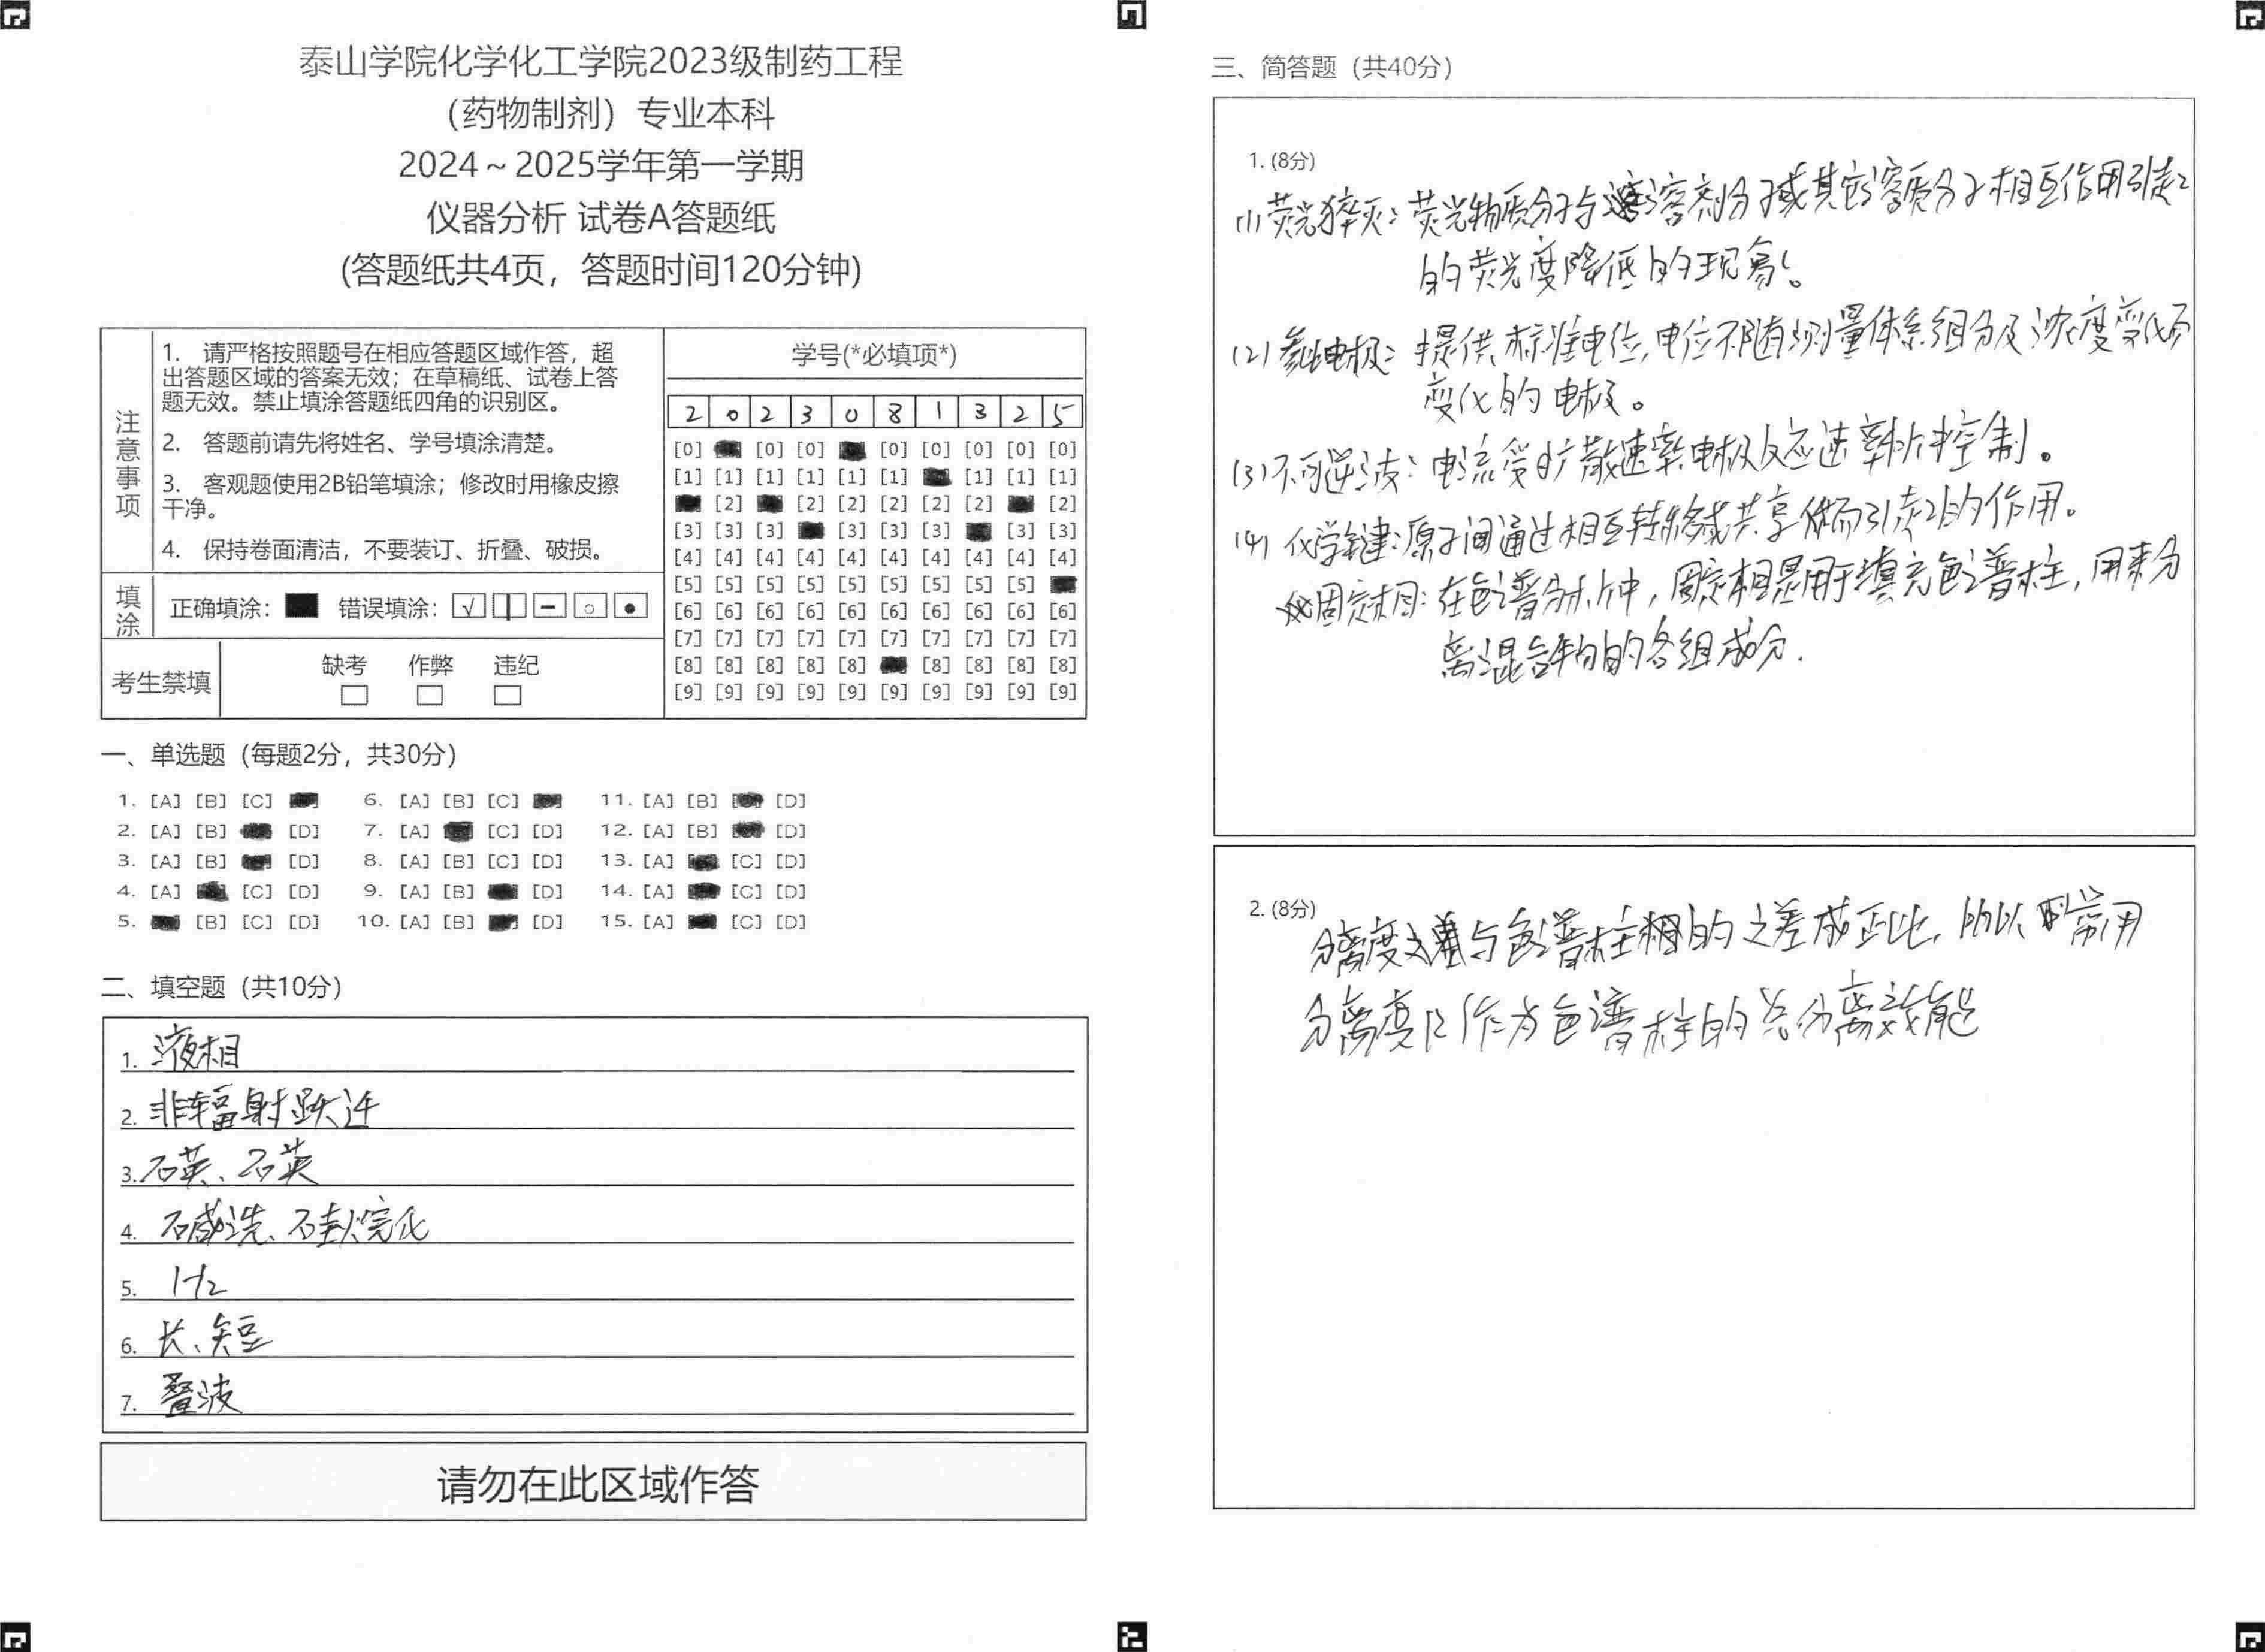 泰山学院化学化工学院2023级制药工程
（药物制剂）专业本科
2024～2025学年第一学期
仪器分析 试卷A答题纸
(答题纸共4页，答题时间120分钟)
注意事项
1. 请严格按照题号在相应答题区域作答，超
出答题区域的答案无效；在草稿纸、试卷上答
题无效。禁止填涂答题纸四角的识别区。
2. 答题前请先将姓名、学号填涂清楚。
3. 客观题使用2B铅笔填涂；修改时用橡皮擦
干净。
4. 保持卷面清洁，不要装订、折叠、破损。
填涂
正确填涂： 错误填涂：
考生禁填
缺考 作弊 违纪
学号(*必填项*)
2 0 2 3 0 8 1 3 2 5
[0] [0] [0] [0] [0] [0] [0] [0]
[1] [1] [1] [1] [1] [1] [1] [1] [1]
[2] [2] [2] [2] [2] [2] [2]
[3] [3] [3] [3] [3] [3] [3] [3]
[4] [4] [4] [4] [4] [4] [4] [4] [4] [4]
[5] [5] [5] [5] [5] [5] [5] [5] [5]
[6] [6] [6] [6] [6] [6] [6] [6] [6] [6]
[7] [7] [7] [7] [7] [7] [7] [7] [7] [7]
[8] [8] [8] [8] [8] [8] [8] [8] [8]
[9] [9] [9] [9] [9] [9] [9] [9] [9] [9]
一、单选题（每题2分，共30分）
1. [A] [B] [C] 6. [A] [B] [C] 11. [A] [B] [D]
2. [A] [B] [D] 7. [A] [C] [D] 12. [A] [B] [D]
3. [A] [B] [D] 8. [A] [B] [C] [D] 13. [A] [C] [D]
4. [A] [C] [D] 9. [A] [B] [D] 14. [A] [C] [D]
5. [B] [C] [D] 10. [A] [B] [D] 15. [A] [C] [D]
二、填空题（共10分）
1. 液相
2. 非辐射跃迁
3. 石英、石英
4. 碱洗、硅烷化
5. H2
6. 长、短
7. 叠波
请勿在此区域作答
三、简答题（共40分）
1. (8分)
(1) 荧光猝灭：荧光物质分子与溶剂分子或其它溶质分子相互作用引起
的荧光度降低的现象。
(2) 参比电极：提供标准电位,电位不随测量体系组分及浓度变化而
变化的电极。
(3) 不可逆波：电流受扩散速率电极反应速率控制。
(4) 化学键：原子间通过相互转移或共享而引起的作用。
固定相：在色谱分析中，固定相是用于填充色谱柱，用来分
离混合物的各组成分.
2. (8分)
分离度与色谱柱的之差成正比，所以常用
分离度R作为色谱柱的总分离效能